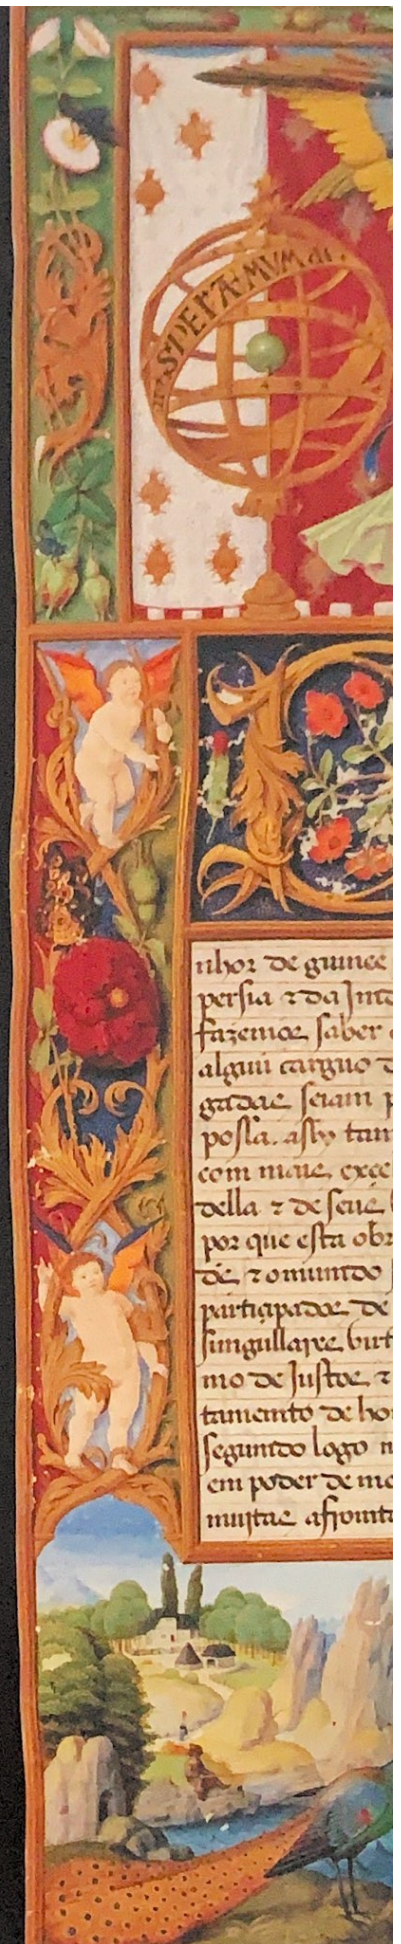 SPERA MVM di
nhor de guinee
persia ⁊ da Int
fazemos saber
alguũ carguo d
gadas seiam p
possa. assy tam
com mais exce
della ⁊ de seus
por que esta obr
de, ⁊ o mundo
participador de
singullares virt
mo de Justos ⁊
tamento de ho
segundo logo n
em poder de me
muitas afronta